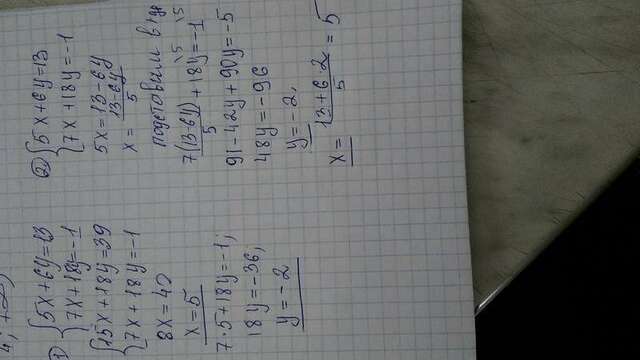 4;
1) { 5x+6y=13
7x+18y=-1
{ 15x+18y=39
7x+18y=-1
8x=40
x=5
7·5+18y=-1;
18y=-36,
y=-2
2) { 5x+6y=13
7x+18y=-1
5x=13-6y
x=\frac{13-6y}{5}
подставим в
7\frac{(13-6y)}{5}^{\5}+18y^{\5}=-1^{\5}
91-42y+90y=-5
48y=-96
y=-2,
x=\frac{13+6·2}{5}=5